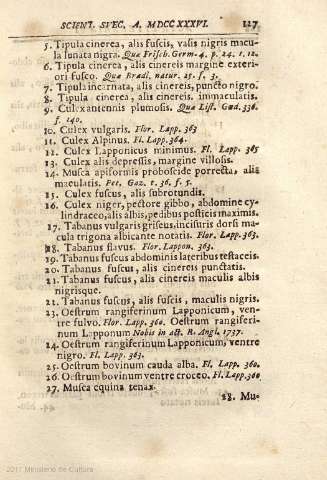 SCIENT. SVEC. A. MDCCXXXVI. 117
5. Tipula cinerea, alis fuscis, vasis nigris macu-
la lunata nigra. Quæ Frisch. Germ. 4. p. 24. t. 12.
6. Tipula cinerea, alis cinereis margine exteri-
ori fusco. Quæ Bradl. natur. 25. f. 3.
7. Tipula incarnata, alis cinereis, puncto nigro.
8. Tipula cinerea, alis cinereis. immaculatis.
9. Culex antennis plumosis. Quæ List. Gœd. 336.
f. 140.
10. Culex vulgaris. Flor. Lapp. 363
11. Culex Alpinus. Fl. Lapp. 364.
12. Culex Lapponicus minimus. Fl. Lapp. 365
13. Culex alis depressis, margine villosis.
14. Musca apiformis proboscide porrecta, alis
macularis. Pet. Gaz. t. 36. f. 5.
15. Culex fuscus, alis subrotundis.
16. Culex niger, pectore gibbo, abdomine cy-
lindraceo, alis albis, pedibus posticis maximis.
17. Tabanus vulgaris griseus, incisuris dorsi ma-
cula trigona albicante notatis. Flor. Lapp. 363.
18. Tabanus flavus. Flor. Lappon. 363.
19. Tabanus fuscus abdominis lateribus testaceis.
20. Tabanus fuscus, alis cinereis punctatis.
21. Tabanus fuscus, alis cinereis maculis albis
nigrisque.
22. Tabanus fuscus, alis fuscis, maculis nigris.
23. Oestrum rangiferinum Lapponicum, ven-
tre fulvo. Flor. Lapp. 360. Oestrum rangiferi-
num Lapponum Nobis in act. R. Angl. 1737.
24. Oestrum rangiferinum Lapponicum, ventre
nigro. Fl. Lapp. 363.
25. Oestrum bovinum cauda alba. Fl. Lapp. 360.
26. Oestrum bovinum ventre croceo. Fl. Lapp. 360
27. Musca equina tenax.
28. Mu-
2017 Ministerio de Cultura